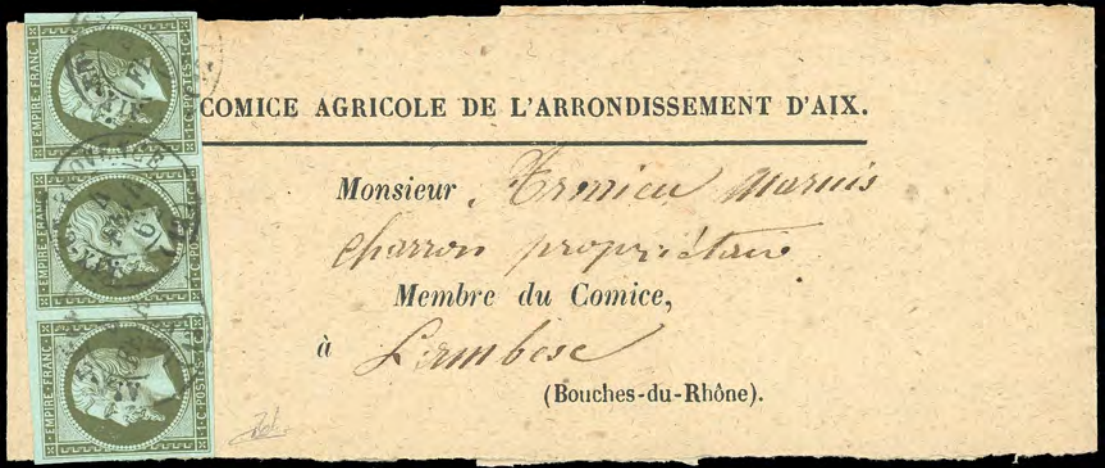 EMPIRE·FRANC· 1·C·POSTES·1·C
EMPIRE·FRANC· 1·C·POSTES·1·C
EMPIRE·FRANC· 1·C·POSTES·1·C
COMICE AGRICOLE DE L'ARRONDISSEMENT D'AIX.
Monsieur
charron propriétaire
Membre du Comice,
à Lambesc
(Bouches-du-Rhône).